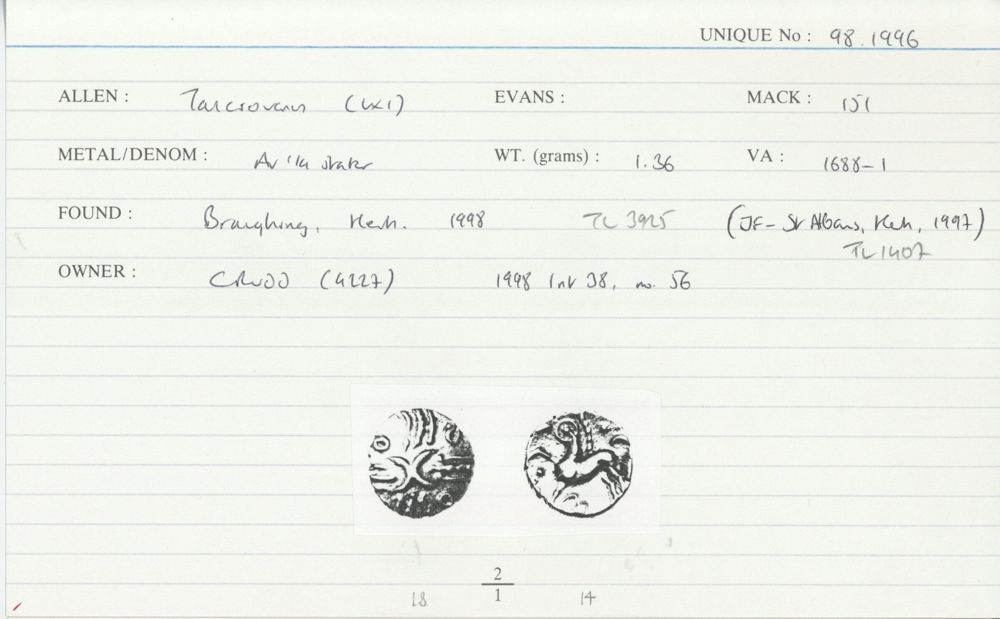 UNIQUE No : 98.1996
ALLEN : Tasciovanus (LX1) EVANS : MACK : 151
METAL/DENOM : AV 1/4 stater WT. (grams) : 1.36 VA : 1688-1
FOUND : Braughing, Herts. 1998 TL 3925 (JF - St Albans, Herts, 1997)
TL 1407
OWNER : CRUDD (4227) 1998 List 38, no. 56
2
18 1 14